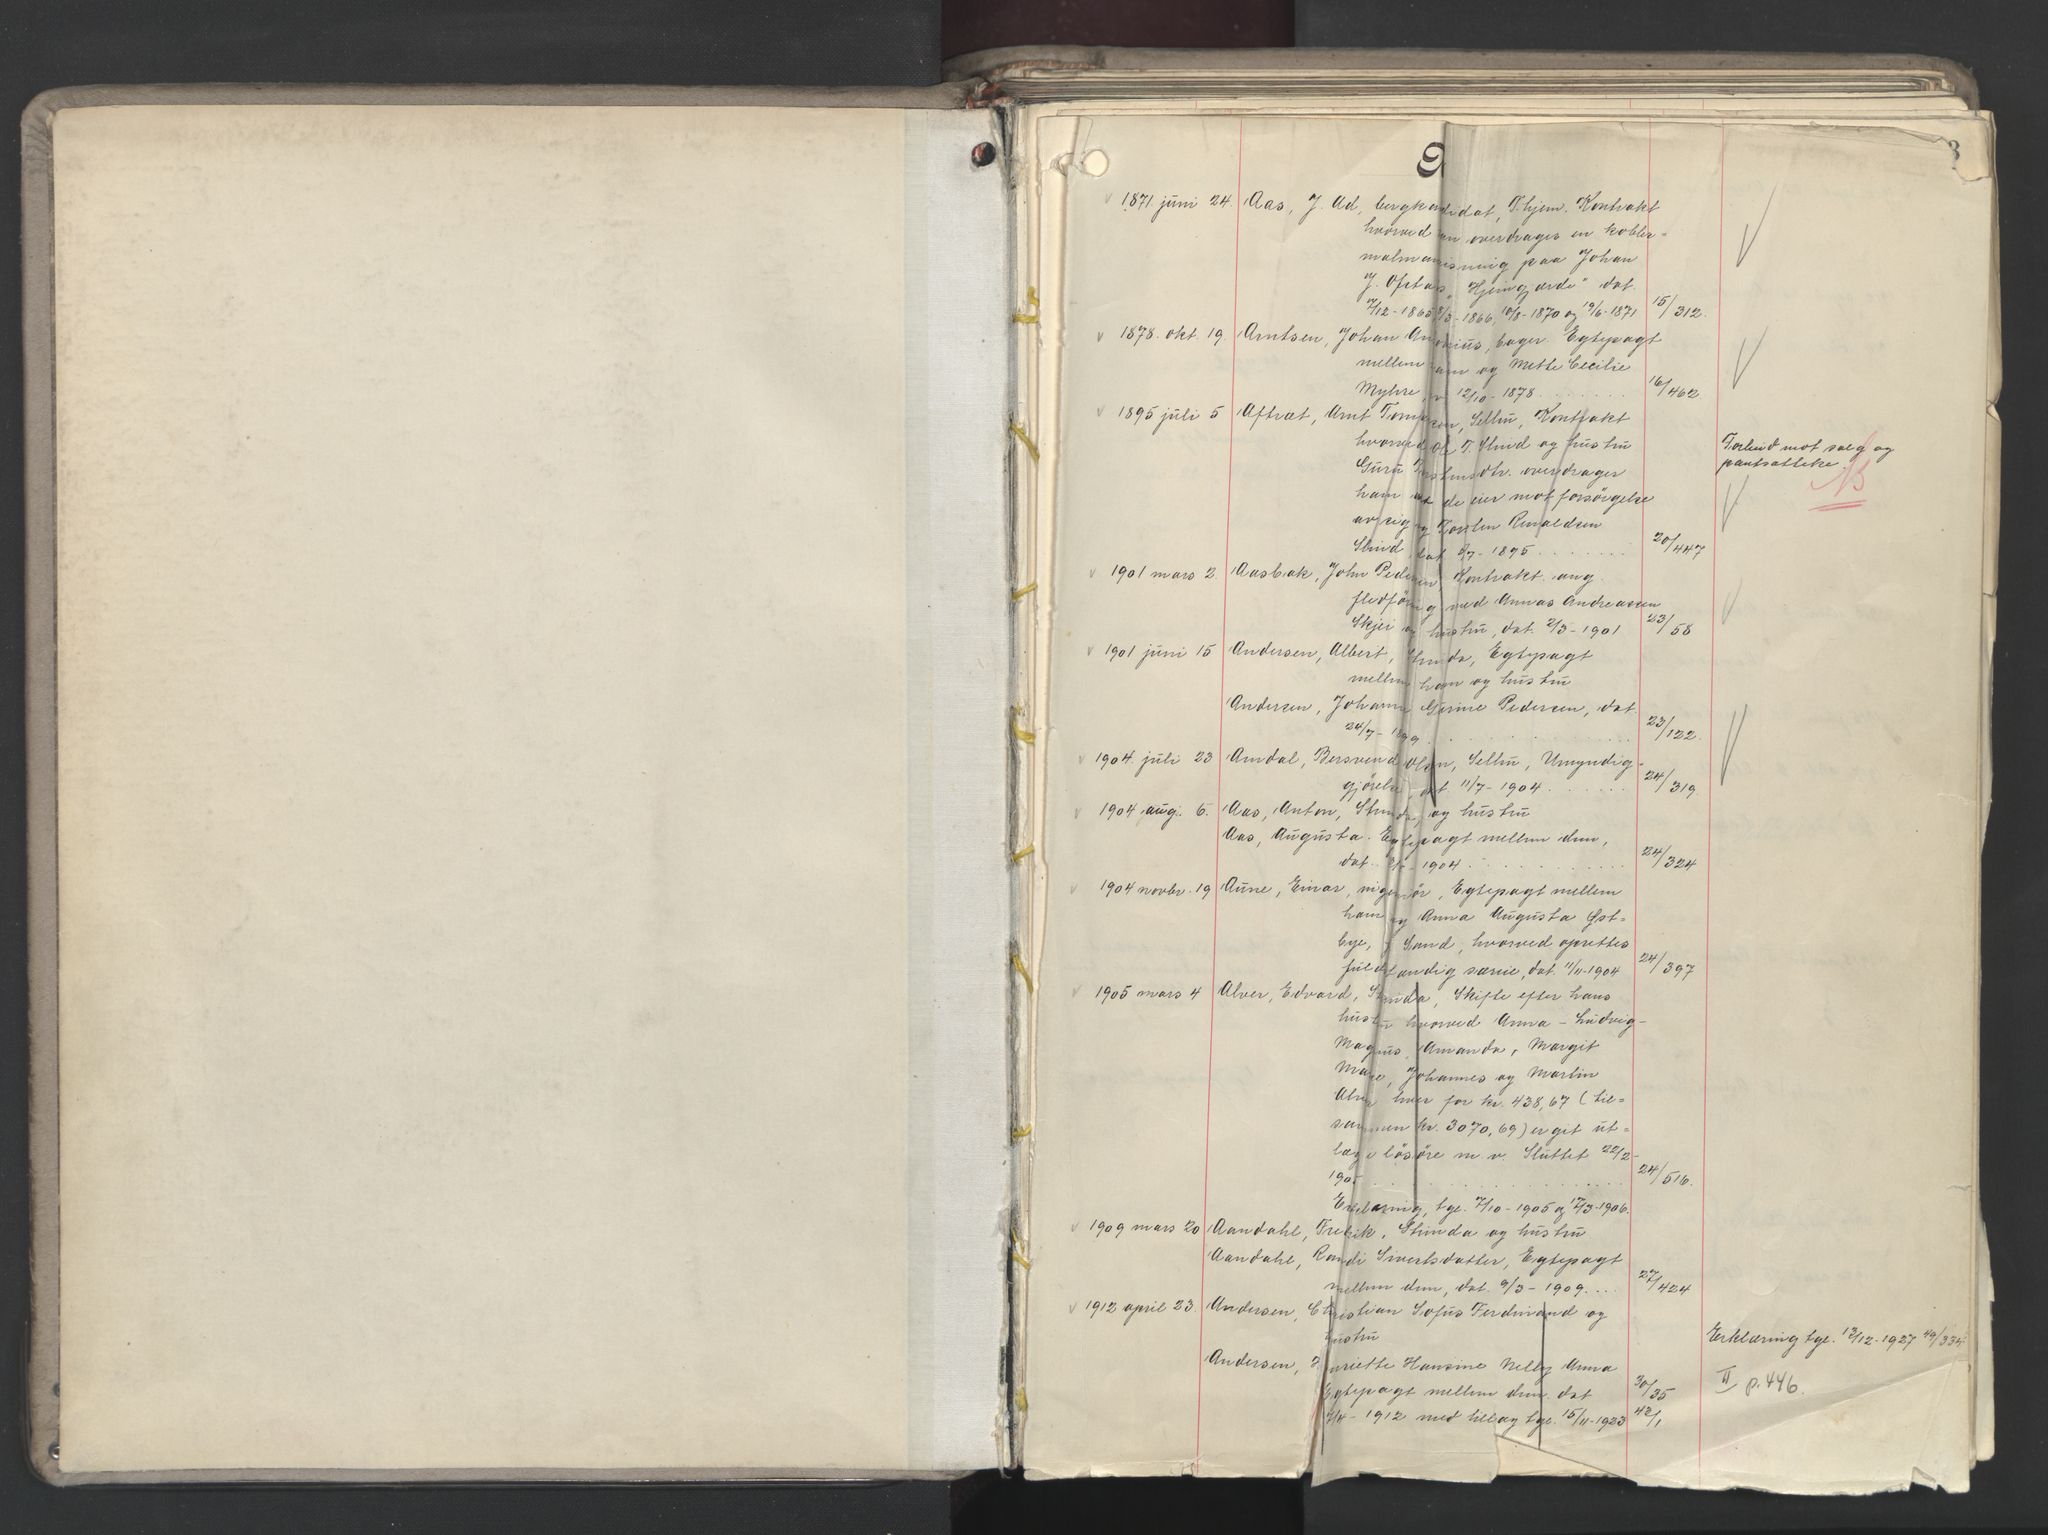 3
1871 juni 24. Aas, J. Ad, bergkandidat, T.hjem. Kontrakt
hvorved overdrages en kobber-
malmanvisning paa Johan
J. Ofstads "Hjemgjærde" dat.
7/12-1865 1866, 10/8-1870 og 19/6-1871 15/312.
1878. okt. 19. Arntsen, Johan, bager. Egtepagt
mellem ham og Mette Cecilie
Myhre, 12/10-1878 . . . . . . . 16/462
1895 juli 5 Aftræt, Arnt, Selbu, Kontrakt
hvorved Ole T. Slind og hustru
Guru overdrager
ham alt de eier mot forsørgelse
av sig og Torsten Renaldsen
Slind, dat. 5/7-1895 . . . . . . . 20/447
Forbud mot salg og
pantsættelse.
NB
1901 mars 2. Aasbak, John Pedersen, Kontrakt ang.
fledføring med Annas Andreassen
Skjei og hustru, dat. 2/3-1901 23/58
1901 juni 15 Andersen, Albert, Strinda, Egtepagt
mellem ham og hustru
Andersen, Johanna Gurine Pedersen, dat.
24/7-1899 . . . . . . . 23/122.
1904. juli 23 Amdal, Bersvend Olsen, Selbu, Umyndig-
gjørelse, dat. 11/7-1904 . . . . . . 24/319.
1904 aug. 6. Aas, Anton, Strinda, og hustru
Aas, Augusta. Egtepagt mellem dem,
dat. 1904 . . . . . . . 24/324
1904 novbr. 19 Aune, Einar, ingeniør, Egtepagt mellem
ham og Anna Augusta Øst-
bye, f. Sand, hvorved oprettes
fuldstændig særeie, dat. 11/11-1904 24/397
1905 mars 4 Alver, Edvard, Strinda, Skifte efter hans
hustru hvorved Anna - Ludvig -
Magnus, Amanda, Margit
Marie, Johannes og Martin
Alver hver for kr. 438,67 (til-
sammen kr. 3070,69) er git ut-
læg i løsøre m.v. Sluttet 22/2-
1905 . . . . . . . 24/516.
Erklæring, tgl. 7/10-1905 og 17/3-1906.
1909 mars 20 Aandahl, Fredrik, Strinda og hustru
Aandahl, Randi Sivertsdatter, Egtepagt
mellem dem, dat. 9/3-1909 . . . . 27/424
1912 april 23. Andersen, Christian Sofus Ferdinand og
hustru
Erklæring tgl. 13/12-1927 49/334
Andersen, Henriette Hansine Nelly Anna
Egtepagt mellem dem, dat 30/35
II p. 446.
7/4-1912 med tillæg tgl. 15/11-1923 42/1